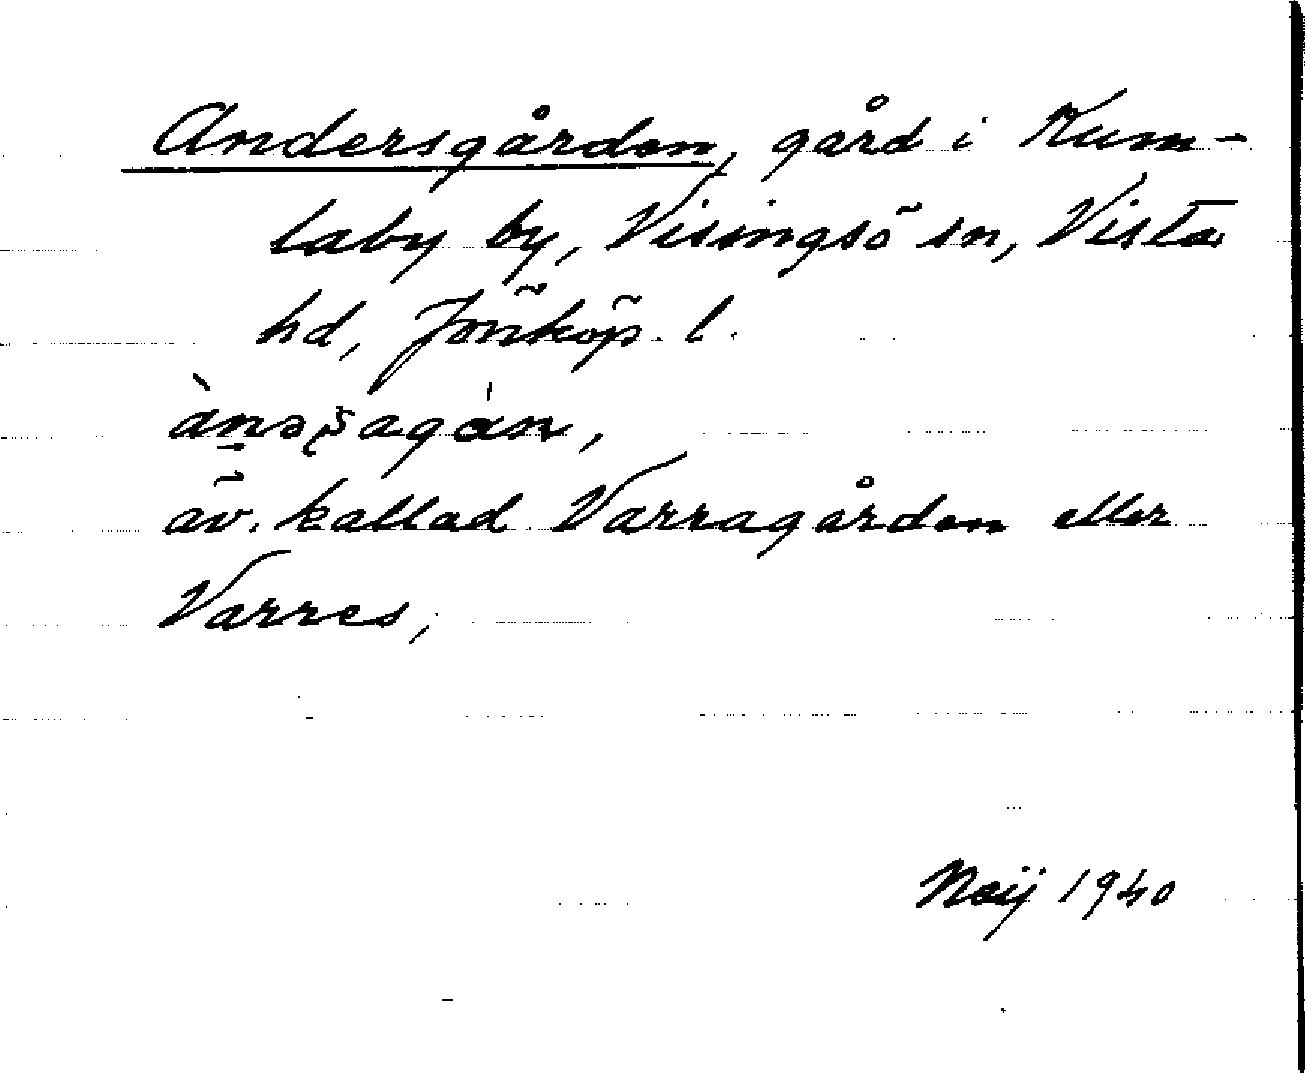 Andersgården, gård i Kum-
laby by, Visingsö sn, Vista
hd, Jönköp. l.
äv. kallad Varragården eller
Varres,
1940